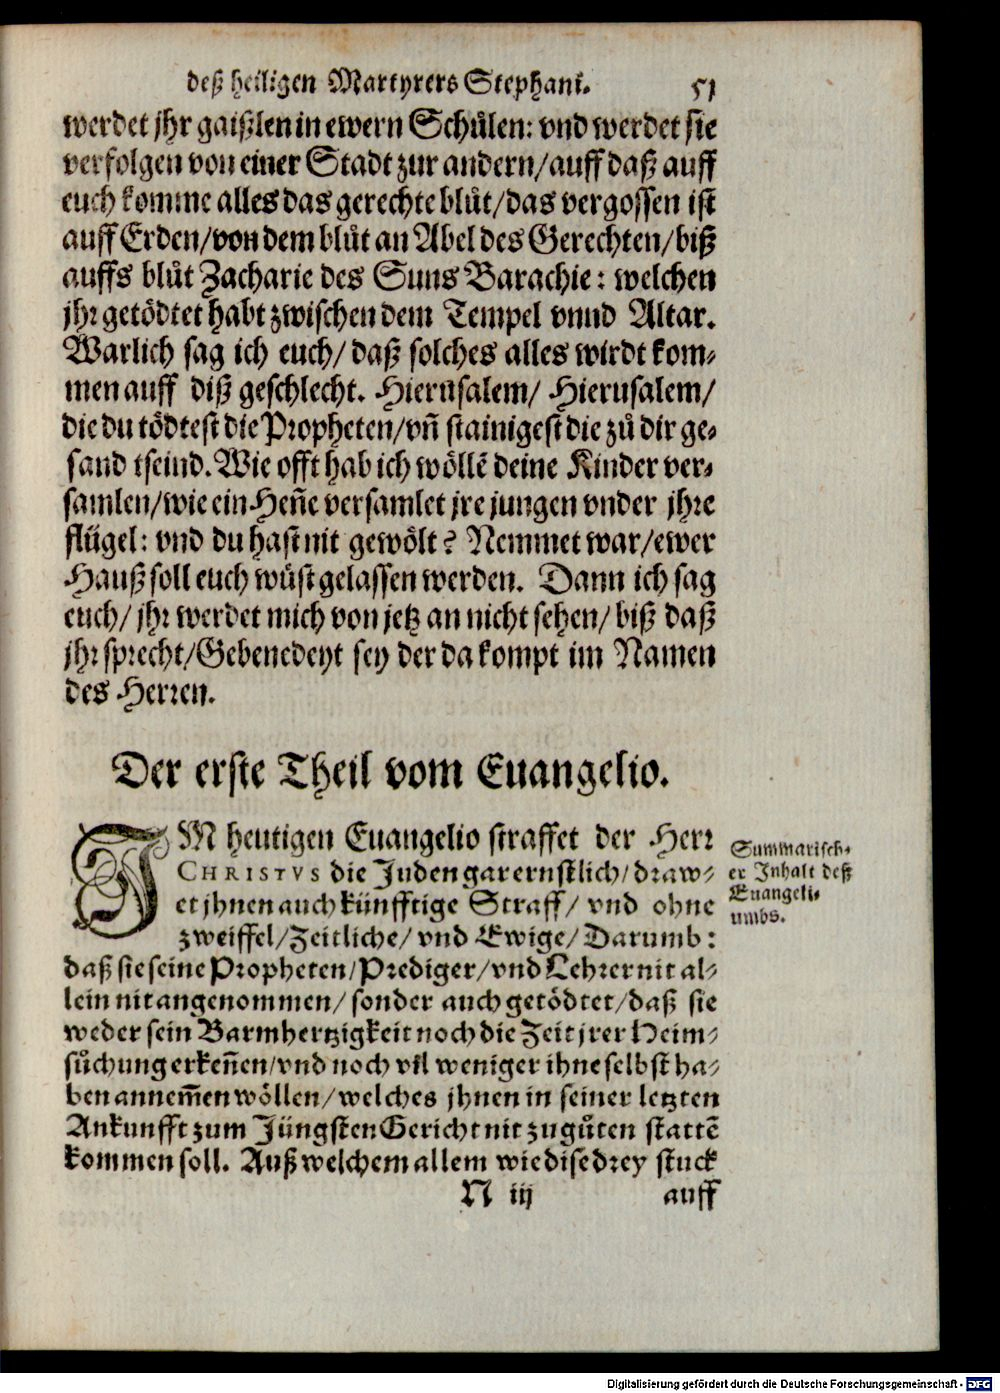 deß heiligen Martyrers Stephani. 51
werdet jhr gaißlen in ewern Schůlen: vnd werdet sie
verfolgen von einer Stadt zur andern/ auff daß auff
euch komme alles das gerechte blůt/ das vergossen ist
auff Erden/ von dem blůt an Abel des Gerechten/ biß
auffs blůt Zacharie des Suns Barachie: welchen
jhr getödtet habt zwischen dem Tempel vnnd Altar.
Warlich sag ich euch/ daß solches alles wirdt kom-
men auff diß geschlecht. Hierusalem/ Hierusalem/
die du tödtest die Propheten/ vñ stainigest die zů dir ge-
sand tseind. Wie offt hab ich wöllẽ deine Kinder ver-
samlen/ wie ein Heñe versamlet jre jungen vnder jhre
flügel: vnd du hast nit gewölt? Nemmet war/ ewer
Hauß soll euch wüst gelassen werden. Dann ich sag
euch/ jhr werdet mich von jetz an nicht sehen/ biß daß
jhr sprecht/ Gebenedeyt sey der da kompt im Namen
des Herren.
Der erste Theil vom Euangelio.
IM heutigen Euangelio straffet der Herr
CHRISTVS die Juden gar ernstlich/ draw-
et jhnen auch künfftige Straff/ vnd ohne
zweiffel/ Zeitliche/ vnd Ewige/ Darumb:
daß sie seine Propheten/ Prediger/ vnd Lehrer nit al-
lein nit angenommen/ sonder auch getödtet/ daß sie
weder sein Barmhertzigkeit noch die Zeit jrer Heim-
sůchung erkeñen/ vnd noch vil weniger ihne selbst ha-
ben annem̃en wöllen/ welches jhnen in seiner letzten
Ankunfft zum Jüngsten Gericht nit zu gůten stattẽ
kommen soll. Auß welchem allem wie dise drey stuck
N iij auff
Summarisch-
er Inhalt deß
Euangeli-
umbs.
Digitalisierung gefördert durch die Deutsche Forschungsgemeinschaft - DFG